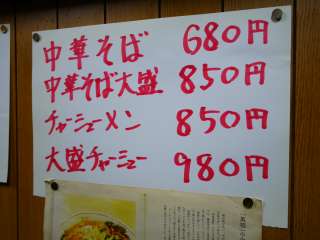 中華そば 680円
中華そば大盛 850円
チャーシューメン 850円
大盛チャーシュー 980円